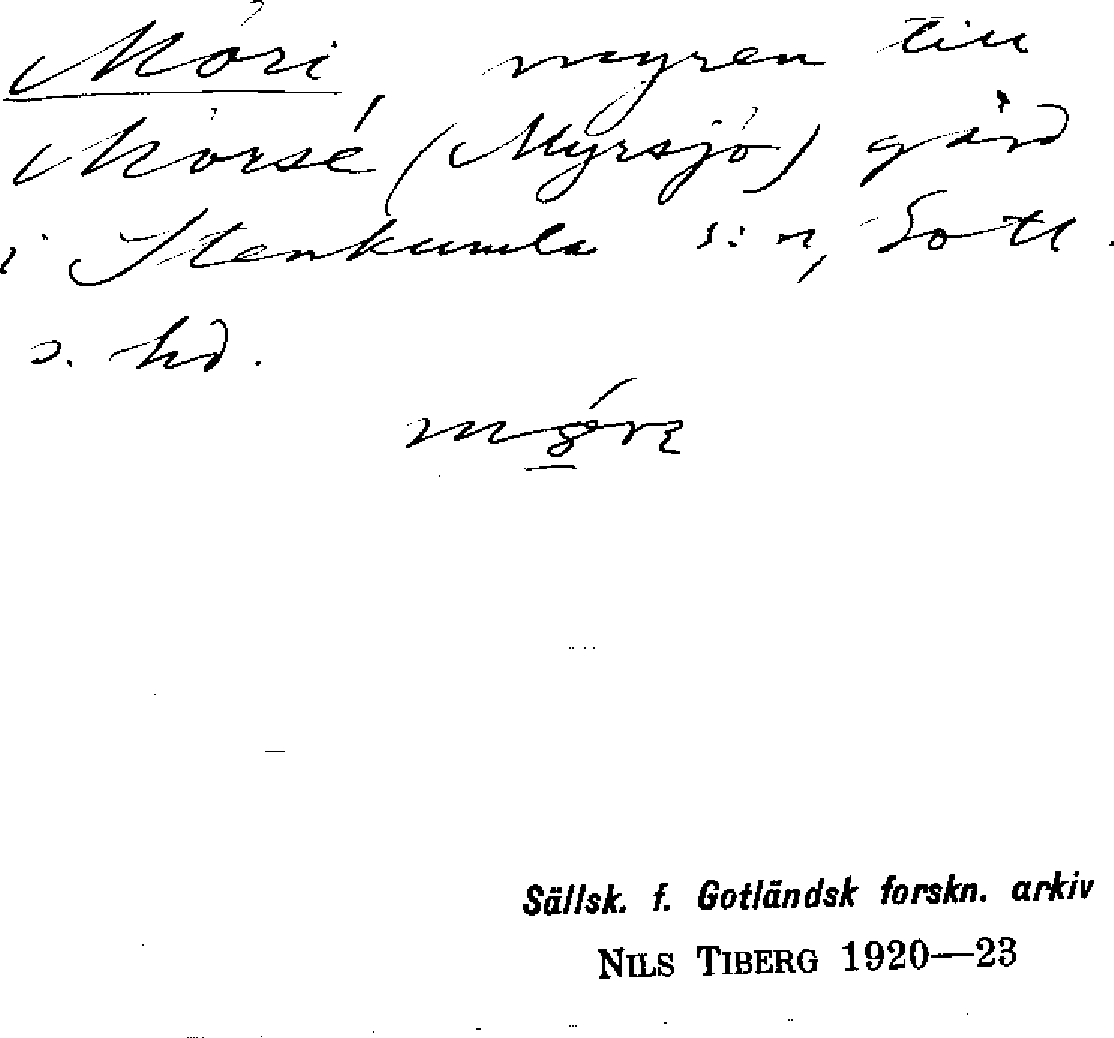 Möri myren till
Mörsé (Myrsjö) gård
i Stenkumla s:n, Gotl.
s. hd.
Sällsk. f. Gotländsk forskn. arkiv
NILS TIBERG 1920—23